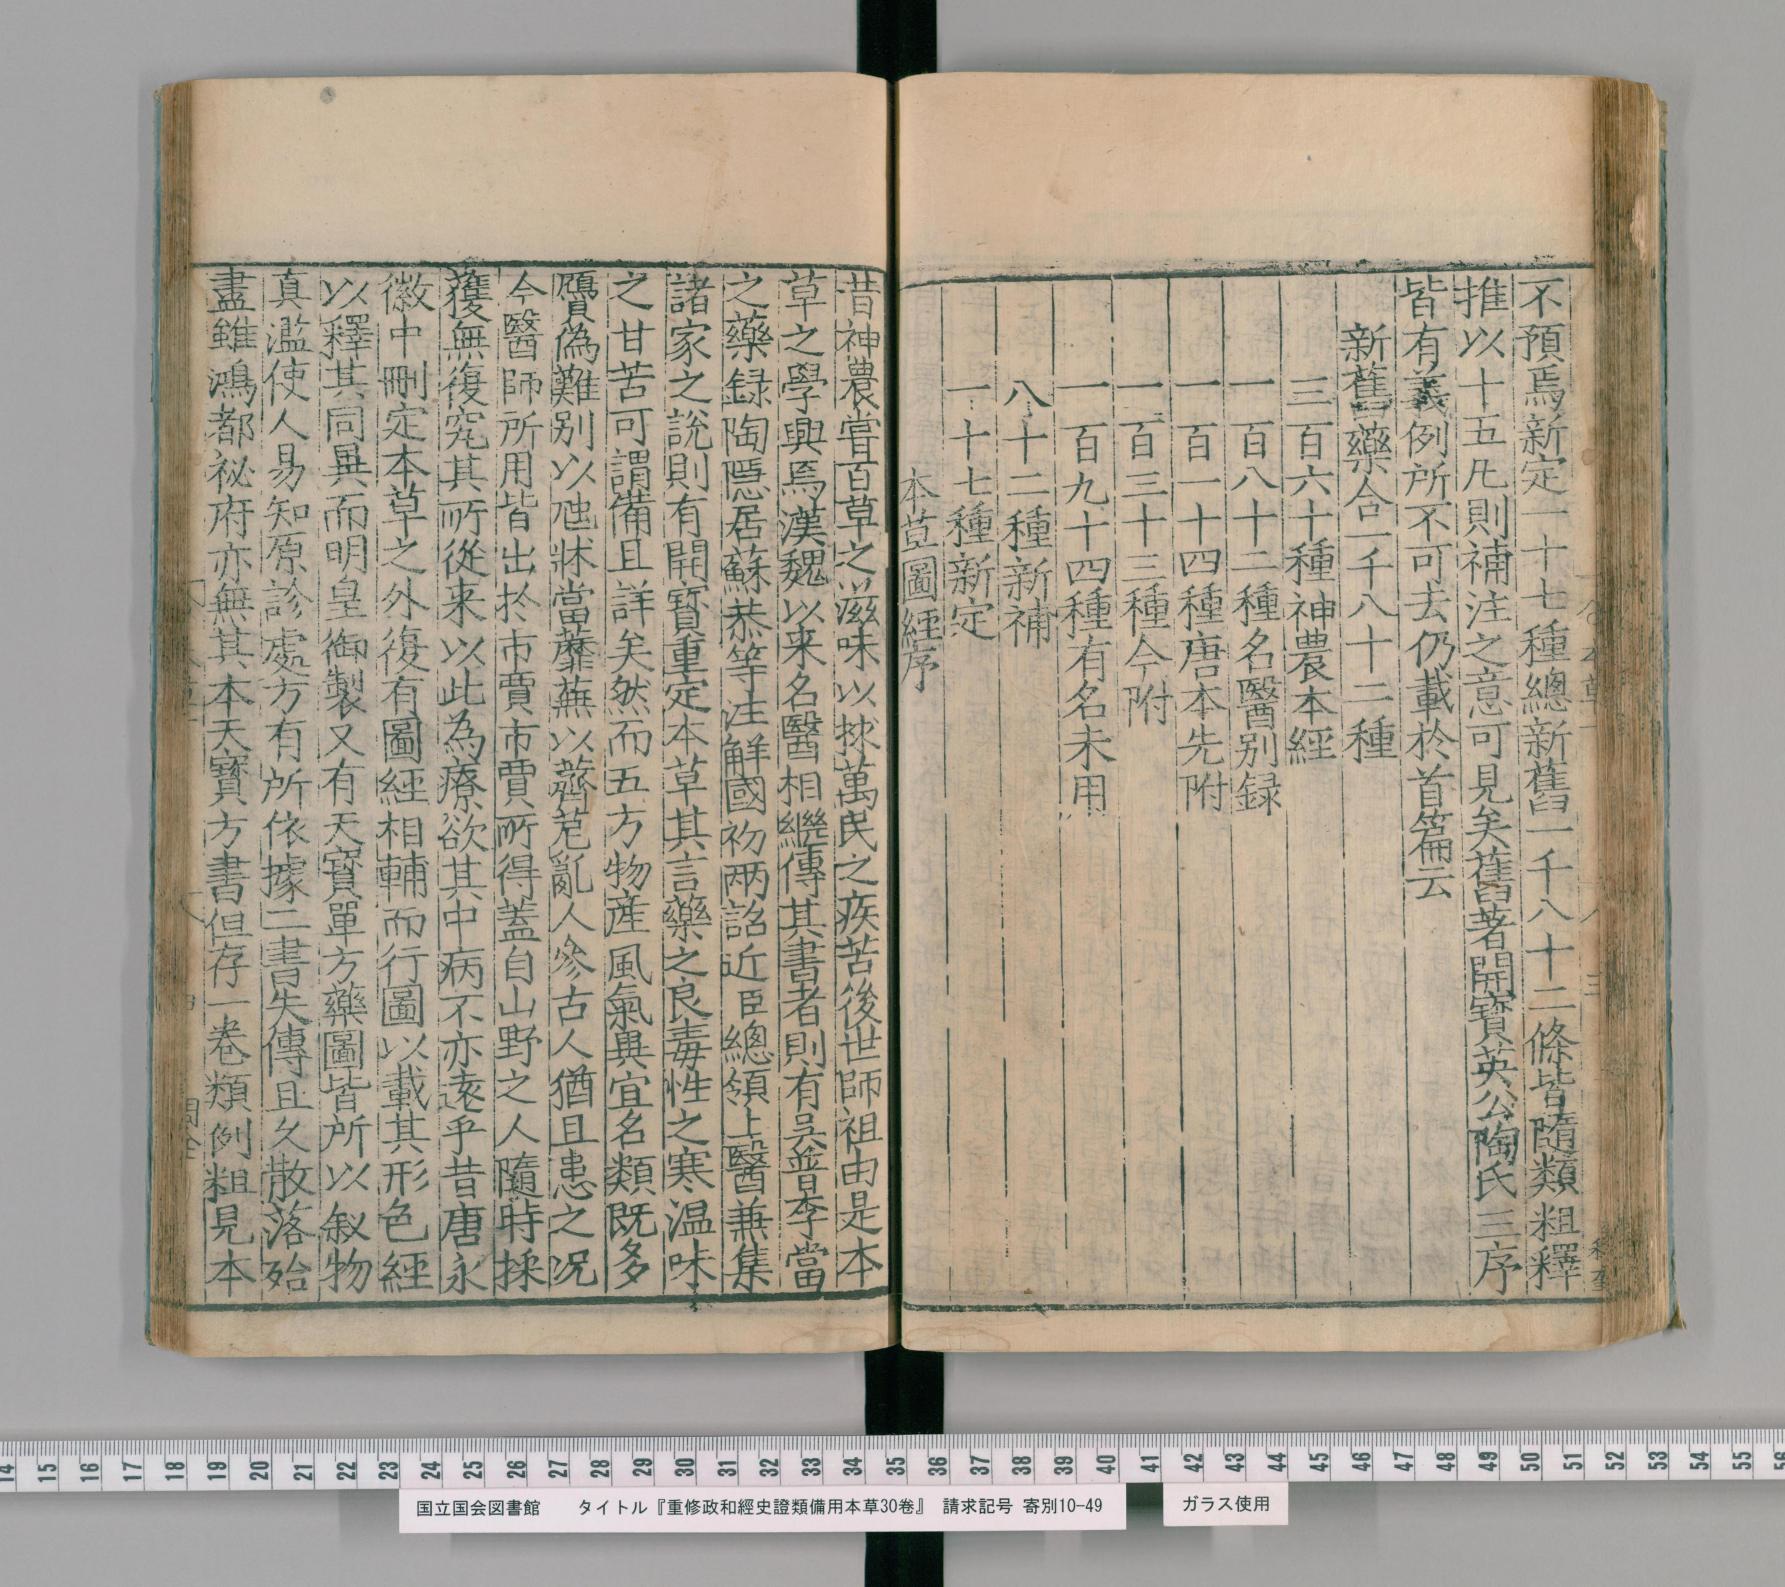 不預焉新定一十七種總新舊一千八十二條皆隨類粗釋
推以十五凡則補注之意可見矣舊著開寶英公陶氏三序
皆有義例所不可去仍載於首篇云
新舊藥合一千八十二種
三百六十種神農本經
一百八十二種名醫别録
一百一十四種唐本先附
一百三十三種今附
一百九十四種有名未用
八十二種新補
一十七種新定
本草圖經序
昔神農嘗百草之滋味以拯萬民之疾苦後世師祖由是本
草之學興焉漢魏以来名醫相繼傳其書者則有吳普李當
之藥録陶隱居蘇恭等注解國初兩詔近臣總領上醫兼集
諸家之說則有開寶重定本草其言藥之良毒性之寒温味
之甘苦可謂備且詳矣然而五方物産風氣異宜名類既多
贗偽難别以虺牀當蘼蕪以薺苨亂人參古人猶且患之况
今醫師所用皆出於市賈市賈所得蓋自山野之人隨時採
獲無復究其所從来以此為療欲其中病不亦遠乎昔唐永
徽中刪定本草之外復有圖經相輔而行圖以載其形色經
以釋其同異而明皇御製又有天寶單方藥圖皆所以叙物
真濫使人易知原診處方有所依據二書失傳且久散落殆
盡雖鴻都祕府亦無其本天寶方書但存一卷類例粗見本
国立国会図書館 タイトル『重修政和經史證類備用本草30巻』 請求記号 寄別10-49
ガラス使用
14 15 16 17 18 19 20 21 22 23 24 25 26 27 28 29 30 31 32 33 34 35 36 37 38 39 40 41 42 43 44 45 46 47 48 49 50 51 52 53 54 55 56